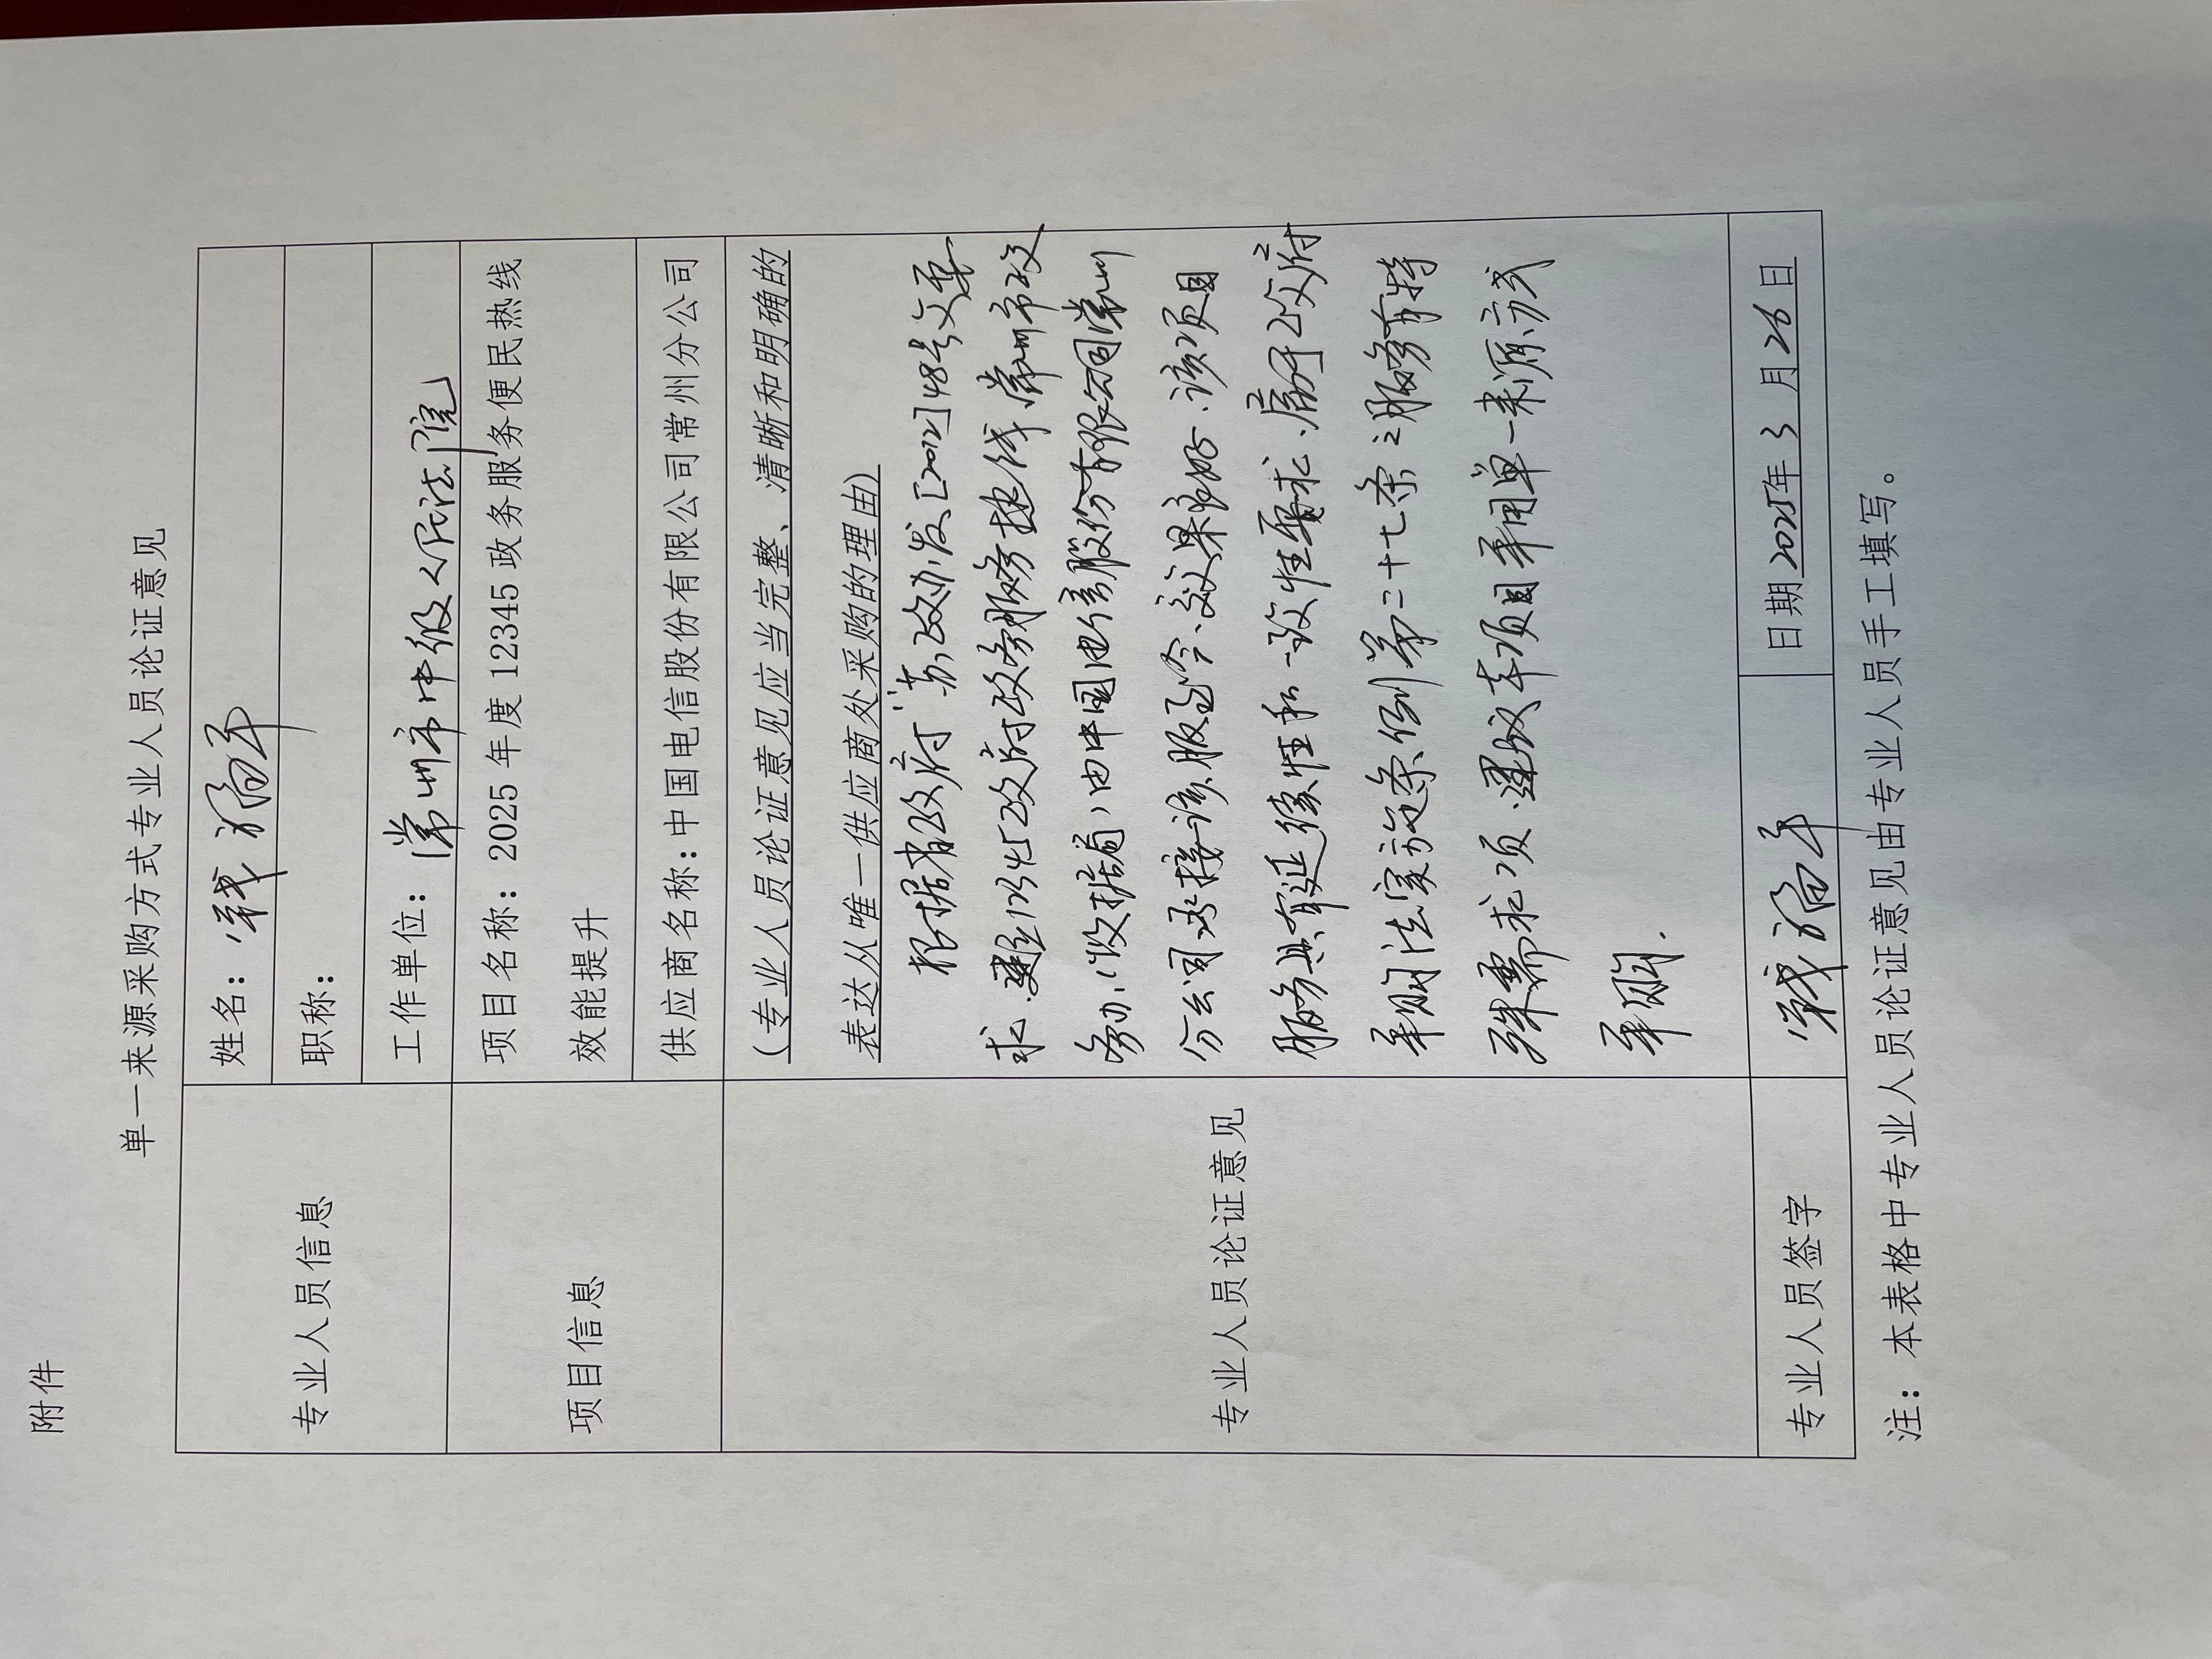 附件
单一来源采购方式专业人员论证意见
专业人员信息
姓名：
职称：
工作单位：常州市中级人民法院
项目信息
项目名称：2025年度12345政务服务便民热线
效能提升
供应商名称：中国电信股份有限公司常州分公司
专业人员论证意见
（专业人员论证意见应当完整、清晰和明确的
表达从唯一供应商处采购的理由）
根据省政府"苏政办发[2012]48号文要
求．建立12345政府政务服务热线．常州市政
务办，由中国电信股份有限公司常州
分公司承接该服至今．效果良好．该项目
服务具有延续性和一致性要求．属于政府
采购法实施条例第二十七条之服务有特
殊需求项．建议本项目采用单一来源方式
采购．
专业人员签字
日期2025年3月26日
注：本表格中专业人员论证意见由专业人员手工填写。